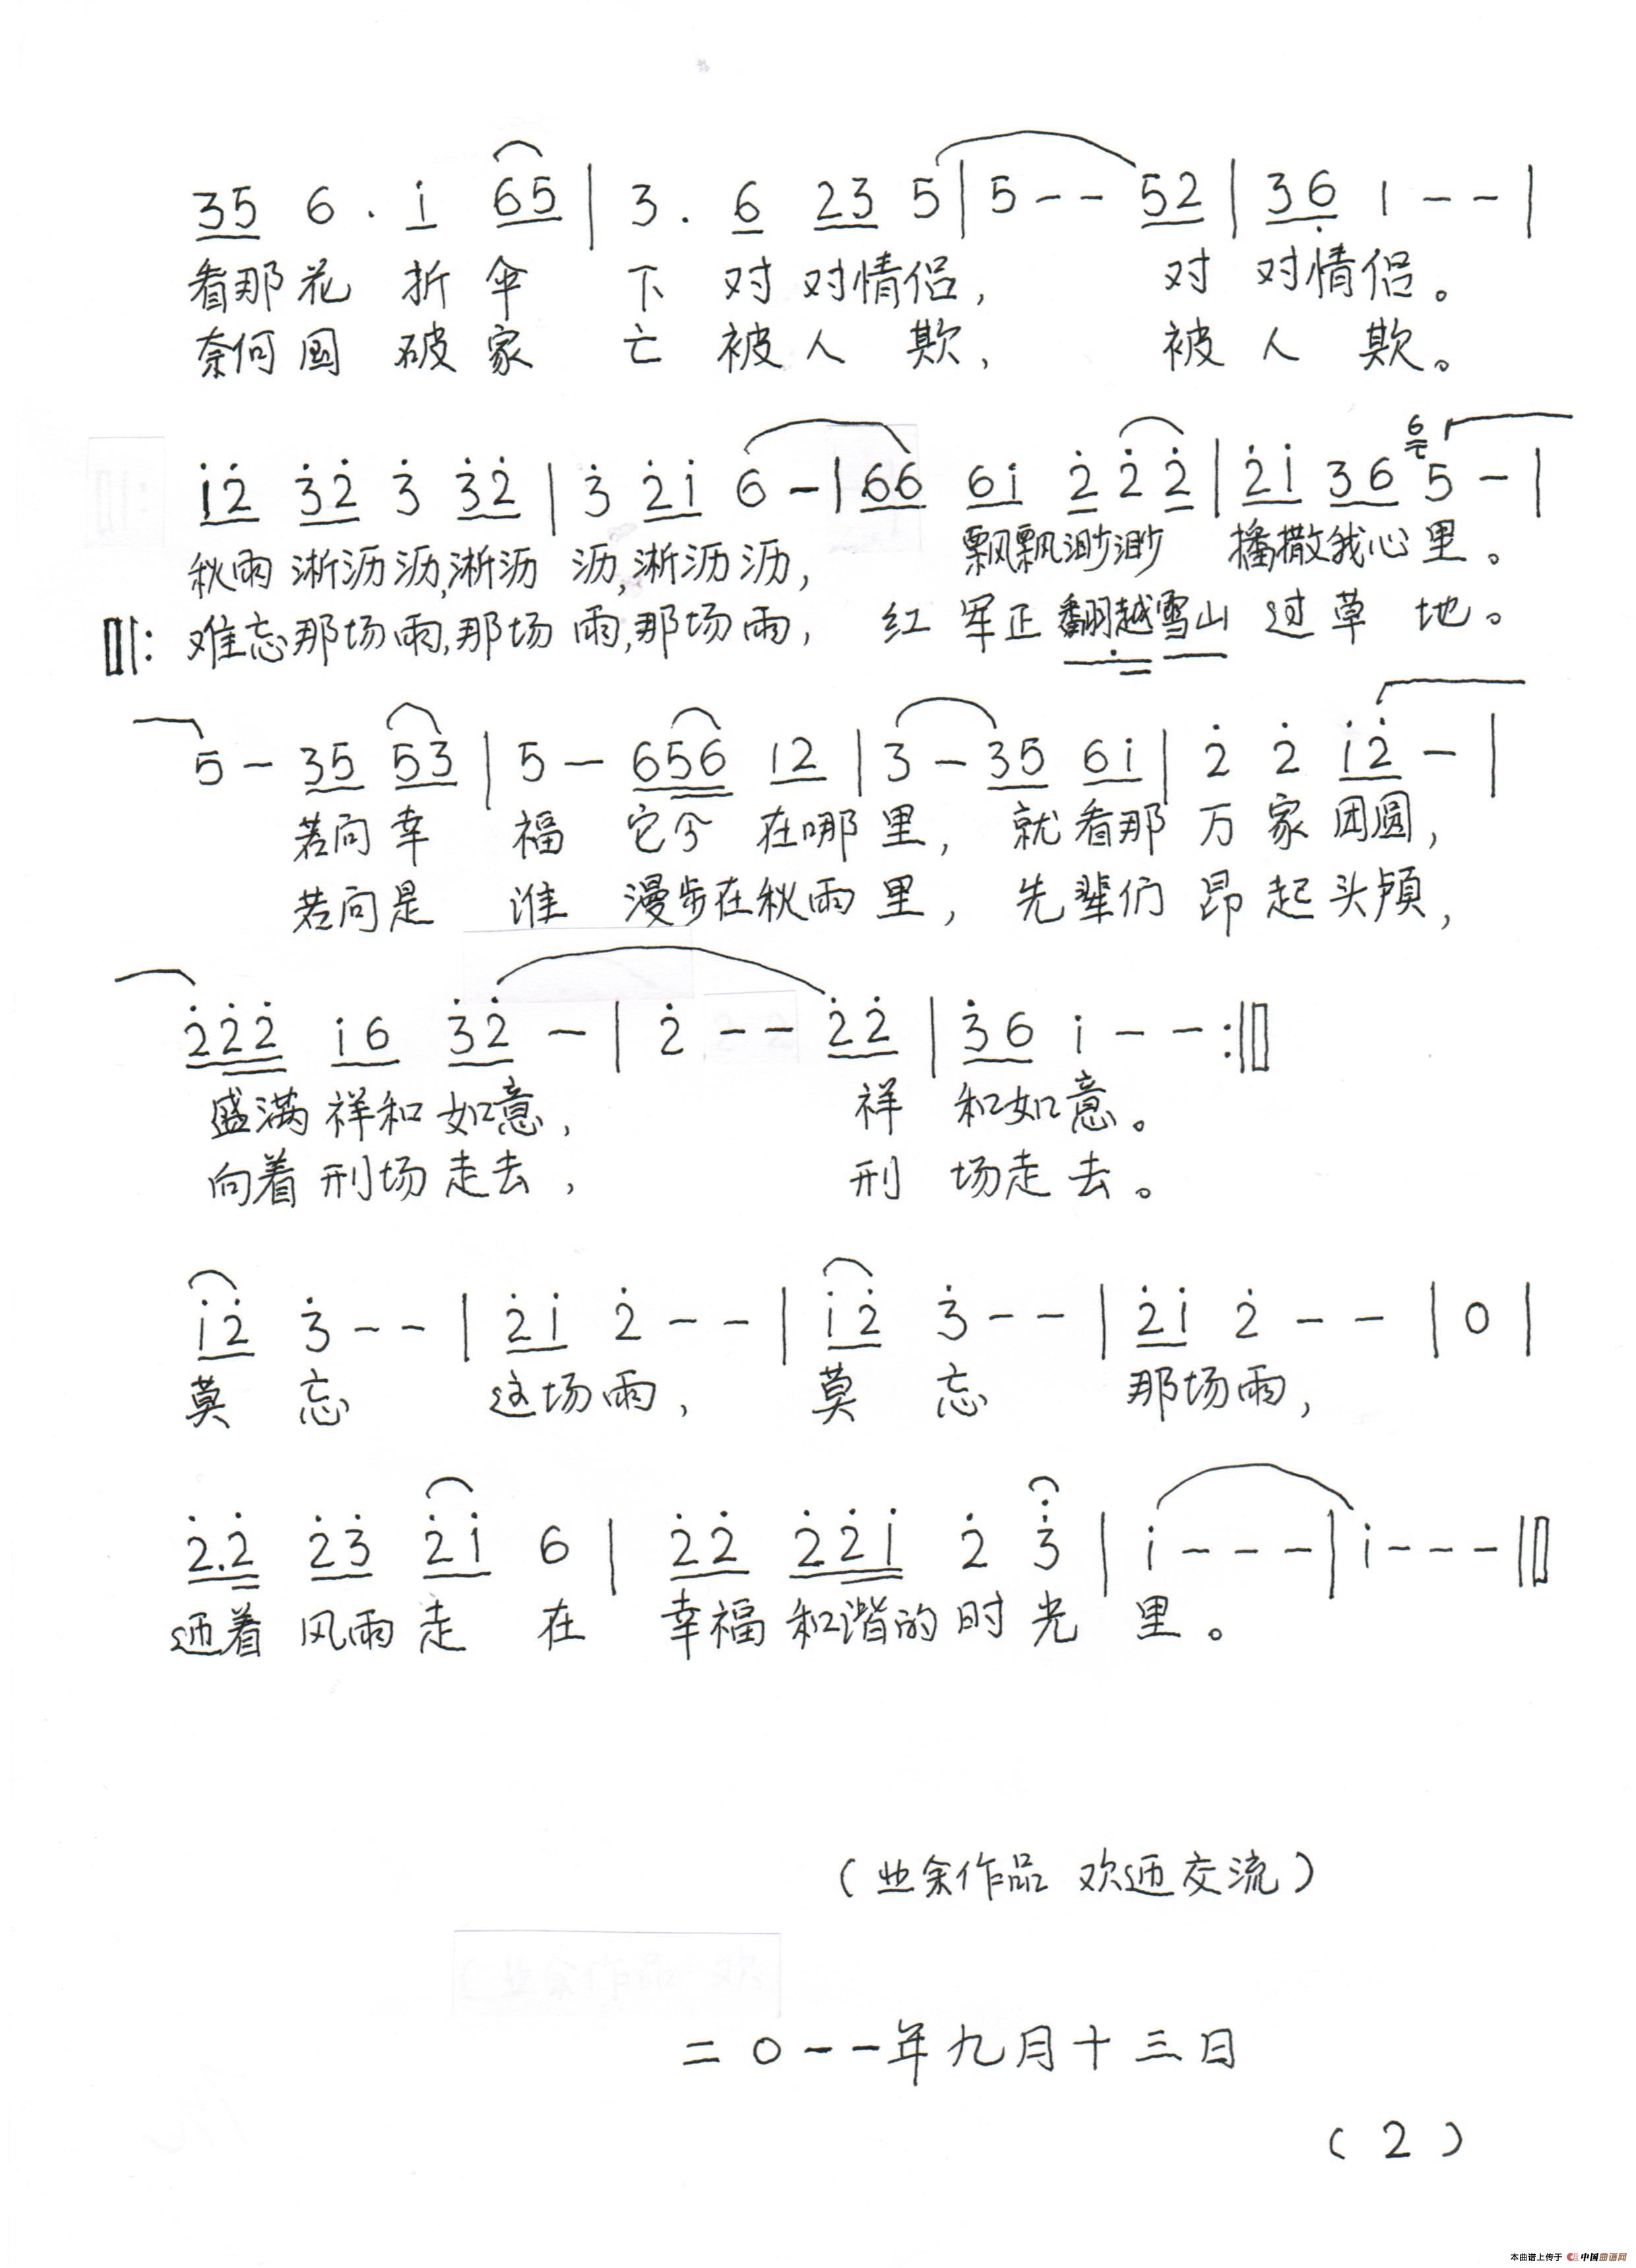 35 6 . i 65 | 3 . 6 23 5 | 5 - - 52 | 36 1 - - |
看那花 折伞 下 对 对情侣， 对 对情侣。
奈何国 破家 亡 被人 欺， 被人 欺。
i2 32 3 32 | 3 2i 6 - | 66 6i 2 2 2 | 2i 36 6 5 - |
秋雨淅沥沥,淅沥 沥,淅沥沥, 飘飘渺渺 播撒我心里。
‖: 难忘那场雨,那场 雨,那场雨, 红 军正翻越雪山 过草 地。
5 - 35 53 | 5 - 656 12 | 3 - 35 6i | 2 2 i2 - |
若问幸 福 它今 在哪里， 就看那 万家团圆，
若问是 谁 漫步在秋雨里， 先辈们 昂起头颅，
222 i6 32 - | 2 - - 22 | 36 i - - :‖
盛满祥和如意， 祥 和如意。
向着刑场走去， 刑 场走去。
i2 3 - - | 2i 2 - - | i2 3 - - | 2i 2 - - | 0 |
莫 忘 这场雨， 莫 忘 那场雨，
2.2 23 2i 6 | 22 22i 2 3 | i - - - | i - - - ‖
迎着 风雨走 在 幸福 和谐的时光 里。
（业余作品 欢迎交流）
二〇一一年九月十三日
（2）
本曲谱上传于 中国曲谱网